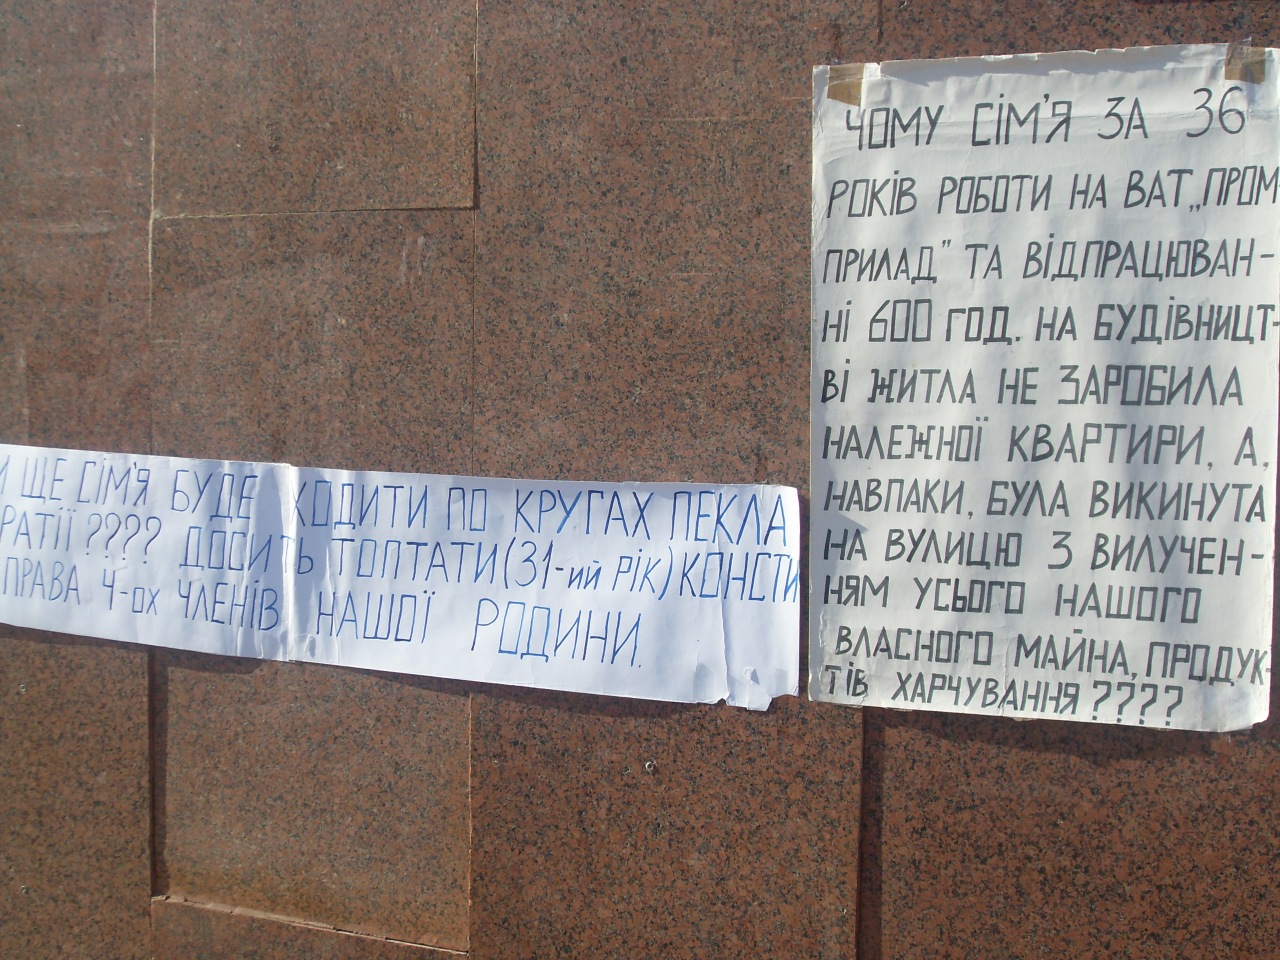 ЩЕ СІМ'Я БУДЕ ХОДИТИ ПО КРУГАХ ПЕКЛА
РАТІЇ???? ДОСИТЬ ТОПТАТИ (31-ий РІК) КОНСТИ
ПРАВА 4-ох ЧЛЕНІВ НАШОЇ РОДИНИ.
ЧОМУ СІМ'Я ЗА 36
РОКІВ РОБОТИ НА ВАТ „ПРОМ-
ПРИЛАД" ТА ВІДПРАЦЮВАН-
НІ 600 ГОД. НА БУДІВНИЦТ-
ВІ ЖИТЛА НЕ ЗАРОБИЛА
НАЛЕЖНОЇ КВАРТИРИ, А,
НАВПАКИ, БУЛА ВИКИНУТА
НА ВУЛИЦЮ З ВИЛУЧЕН-
НЯМ УСЬОГО НАШОГО
ВЛАСНОГО МАЙНА, ПРОДУК-
ТІВ ХАРЧУВАННЯ????